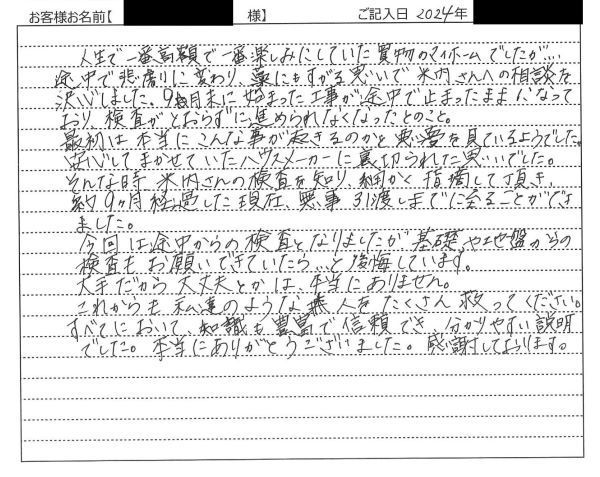 お客様お名前【 様】 ご記入日 2024年
人生で一番高額で一番楽しみにしていた買物のマイホームでしたが…
途中で悲劇に変わり、藁にもすがる思いで米内さんへの相談を
決心しました。9月末に始まった工事が途中で止まったままになって
おり、検査がとおらずに進められなくなったとのこと。
最初は本当にこんな事が起きるのかと悪夢を見ているようでした。
安心してまかせていたハウスメーカーに裏切られた思いでした。
そんな時 米内さんの検査を知り、細かく指摘して頂き、
約9ヶ月経過した現在、無事 引渡しまでに至ることができ
ました。
今回は途中からの検査となりましたが 基礎や地盤からの
検査も お願いできていたら…と後悔しています。
大手だから大丈夫とかは、本当にありません。
これからも 私達のような 人をたくさん 救ってください。
すべてにおいて、知識も豊富で信頼でき、分かりやすい説明
でした。本当にありがとうございました。感謝しております。